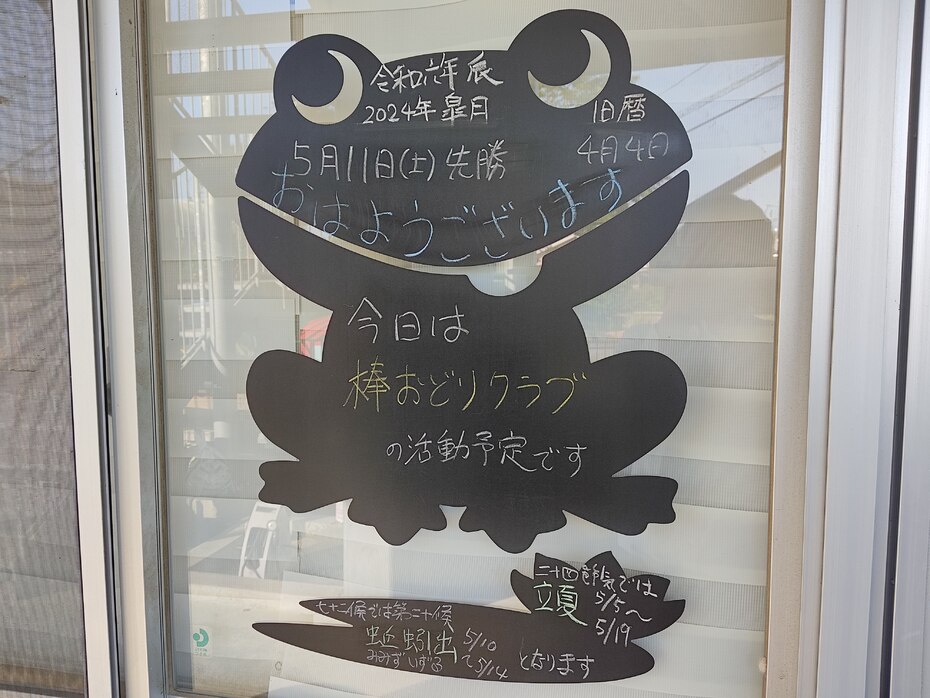 令和六年 辰
2024年 皐月
旧暦
4月4日
5月11日(土) 先勝
おはようございます
今日は
棒おどりクラブ
の活動予定です
二十四節気では
立夏 5/5〜
5/19
七十二候では第二十候
蚯蚓出 5/10
みみずいずる 〜5/14
となります